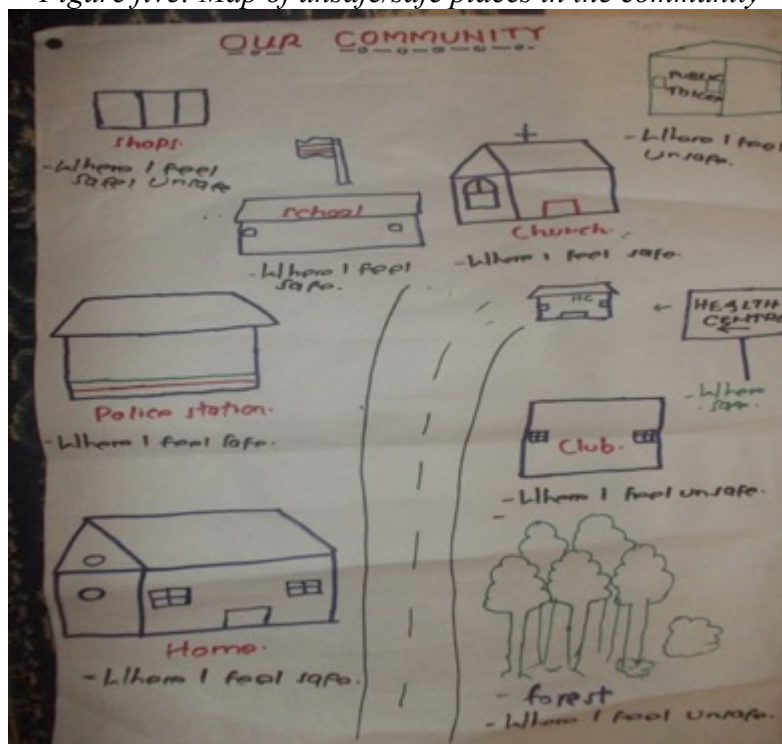 Figure five: Map of unsafe/safe places in the community
OUR COMMUNITY
PUBLIC
TOILET
- Where I feel
Unsafe.
Shops.
- Where I feel
safe/ unsafe
School
- Where I feel
safe.
Church.
- Where I feel safe.
HC
← HEALTH
CENTRE
←
- Where
safe.
Police station.
- Where I feel safe.
Club.
- Where I feel unsafe.
-
Home.
- Where I feel safe.
- forest
- Where I feel unsafe.